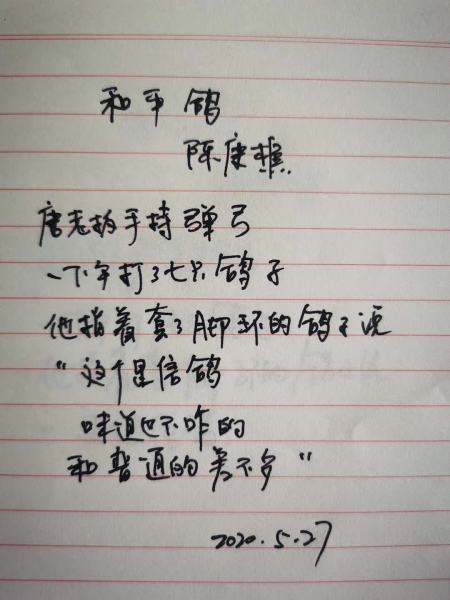 和平鸽
陈康樵
唐老板手持弹弓
一下午打了七只鸽子
他指着套了脚环的鸽子说
“这个是信鸽
味道也不咋的
和普通的差不多”
2020.5.27